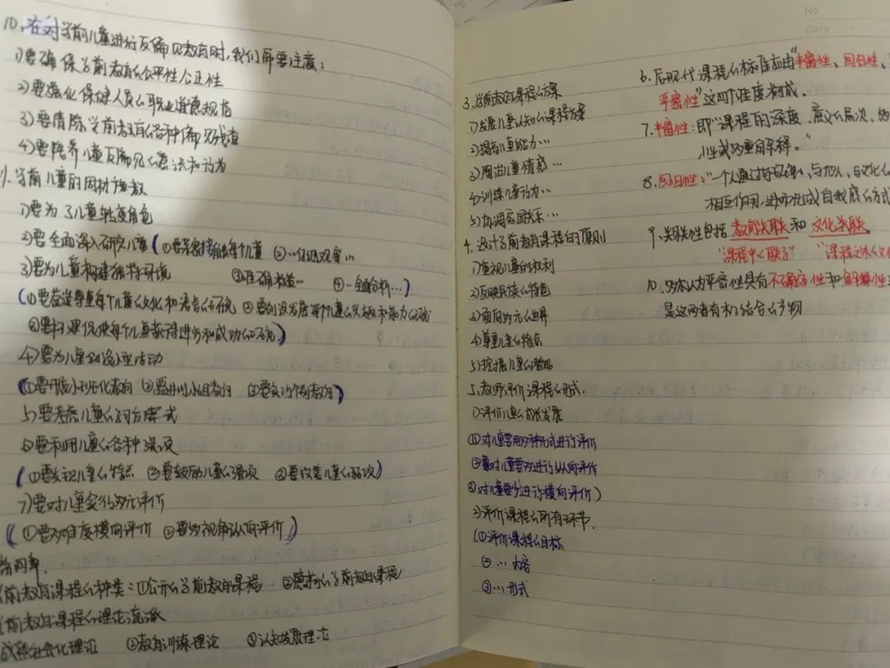 10. 在对学前儿童进行反偏见教育时,我们需要注意:
1)要确保学前教育的公平性公正性
2)要强化保健人员的职业道德规范
3)要清除学前教育的各种偏见残渣
4)要培养儿童反偏见的意识和行为
学前儿童的因材施教
1)要为了儿童转变角色
2)要全面深入研究儿童(①要亲密接触每个儿童 ②…观察…
3)要为儿童构建独特环境 ③准确… ④…全面分析…)
(①要营造尊重每个儿童文化和语言的环境 ②要创设发展每个儿童兴趣和能力的环境
③要构建促使每个儿童获得进步和成功的环境)
4)要为儿童创设小型活动
(①要开展小班化教育 ②要进行小组教育 ③要实行个别教育)
5)要考虑儿童的学习模式
6)要利用儿童的各种强项
(①要发现儿童的强项 ②要鼓励儿童的强项 ③要改善儿童的弱项)
7)要对儿童实行多元评价
(①要多维度横向评价 ②要多视角纵向评价)
第四章.
学前教育课程的种类:①公开的学前教育课程 ②隐蔽的学前教育课程
学前教育课程的理论流派
成熟社会化理论 ②教育训练理论 ③认知发展理论
3. 学前教育课程的方案
1)发展儿童认知的课程方案
2)提高儿童能力…
3)陶冶儿童情感…
4)训练儿童行为…
5)协调家园关系…
4. 设计学前教育课程的原则
1)重视儿童的权利
2)反映民族的特色
3)面向多元世界
4)尊重儿童的
5)挖掘儿童的潜能
5. 教师评价课程的形式.
1)评价儿童的发展
(①对儿童要用多种形式进行评价
②对儿童要多进行纵向评价
③对儿童要少进行横向评价)
2)评价课程的所有环节.
(①评价课程的目标
②…内容
③…形式
6. 后现代课程的标准由"丰富性、回归性、
平密性"这四个维度构成.
7. 丰富性:即"课程的深度、意义的层次、
性或多重的解释。"
8. 回归性:"一个人通过与环境、与他人、与文化的
相互作用,进而形成自我感的方式
9. 关联性包括教育关联和文化关联.
"课程中的联系" "课程之外的文化
10. 多尔认为平密性具有不确定性和解释性
是这两者有机结合的产物